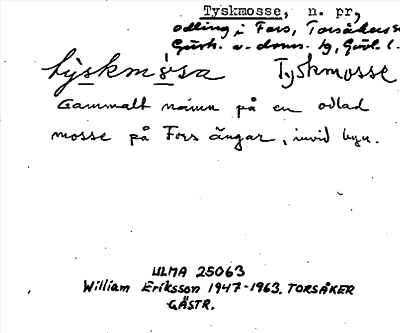 Tyskmosse, n. pr,
odling i Fors, Torsåkers
Gästr. v. doms. lg, Gävl. l.
týskmòsa Tyskmosse
Gammalt namn på en odlad
mosse på Fors ängar, invid byn.
ULMA 25063
William Eriksson 1947-1963. TORSÅKER
GÄSTR.